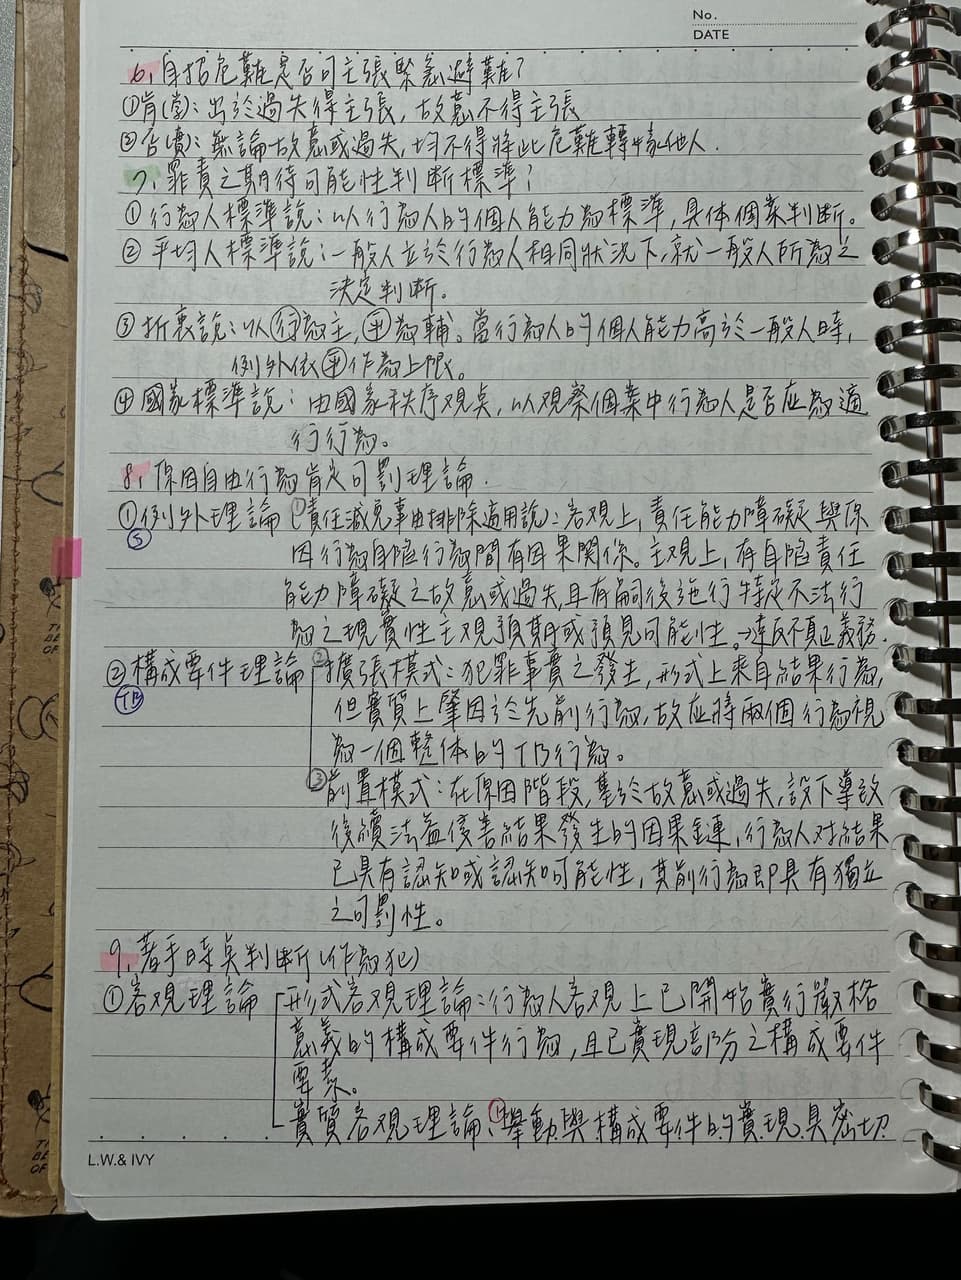 No.
DATE
6. 自招危難是否可主張緊急避難?
①肯(學): 出於過失得主張, 故意不得主張
②否(實): 無論故意或過失, 均不得將此危難轉嫁他人.
7. 罪責之期待可能性判斷標準?
① 行為人標準說: 以行為人的個人能力為標準, 具体個案判斷。
② 平均人標準說: 一般人立於行為人相同狀況下, 就一般人所為之
決定判斷。
③ 折衷說: 以㊀行為主, 平為輔。當行為人的個人能力高於一般人時,
例外依平作為上限。
④ 國家標準說: 由國家秩序观点, 以观察個案中行為人是否應為適
行行為。
8. 原因自由行為肯定可罰理論.
①例外理論 ①(責任減免事由排除適用說): 客观上, 責任能力障礙與原
Ⓢ 因行為自陷行為間有因果關係。主观上, 有自陷責任
能力障礙之故意或過失, 且有嗣後施行特定不法行
為之現實性主观預期或預見可能性。→違反不真正義務.
②構成要件理論 ②擴張模式: 犯罪事實之發生, 形式上來自結果行為,
TB 但實質上肇因於先前行為, 故应將兩個行為視
為一個整体的TB行為。
③前置模式: 在原因階段, 基於故意或過失, 設下導致
後續法益侵害結果發生的因果鏈, 行為人对結果
已具有認知或認知可能性, 其前行為即具有獨立
之可罰性。
9. 著手時点判斷(作為犯)
①客观理論 形式客观理論: 行為人客观上已開始實行嚴格
意義的構成要件行為, 且已實現部分之構成要件
要素。
實質客观理論: ①舉動與構成要件的實現具密切
L.W.& IVY